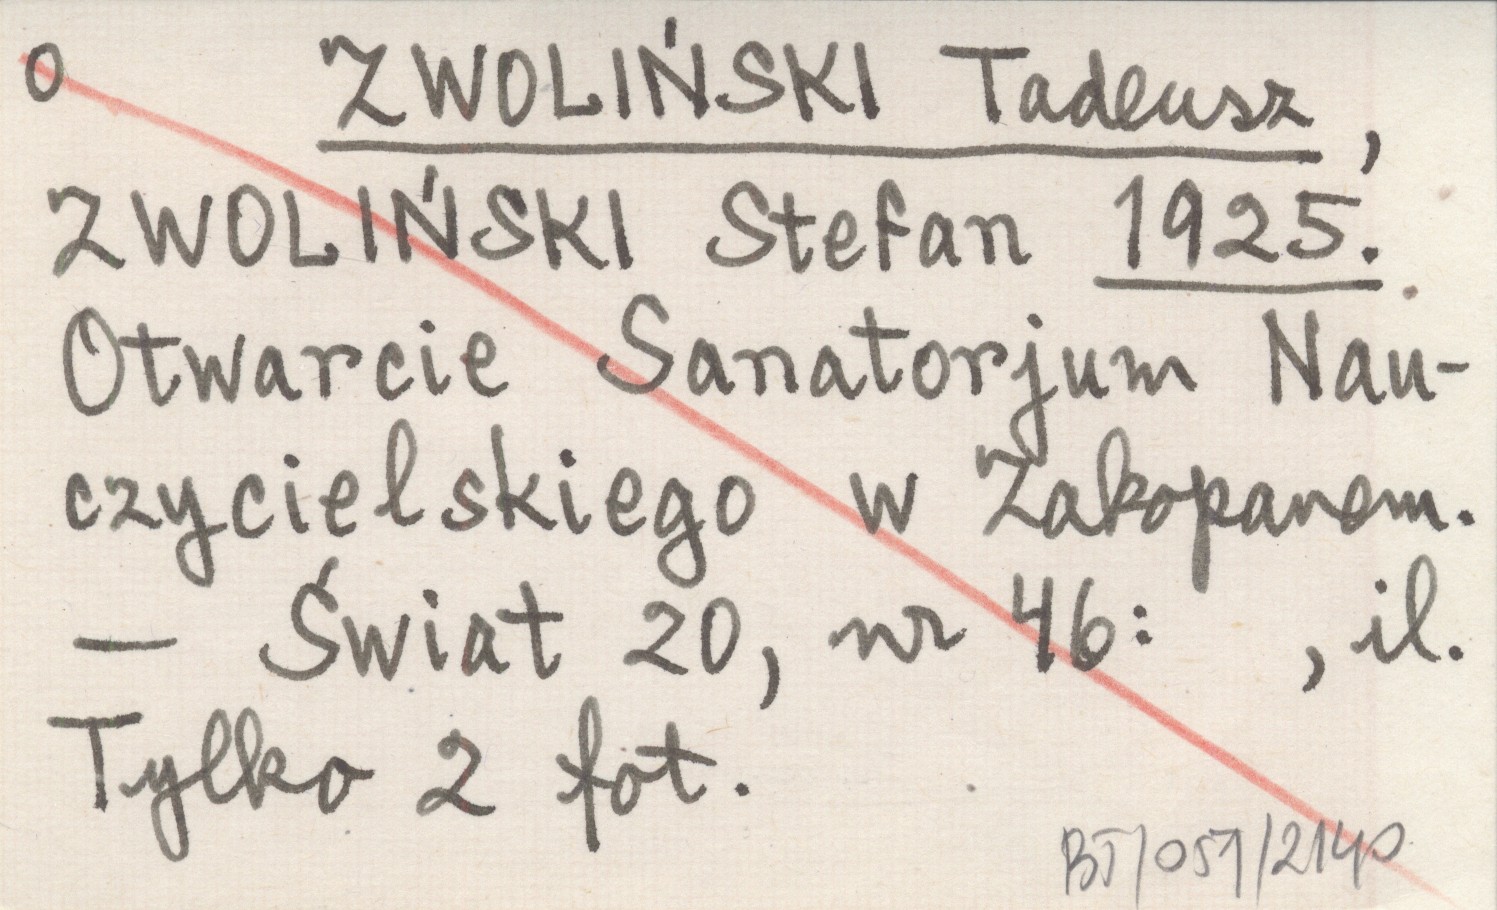 O ZWOLIŃSKI Tadeusz,
ZWOLIŃSKI Stefan 1925.
Otwarcie Sanatorjum Nau-
czycielskiego w Zakopanem.
— Świat 20, nr 46: , il.
Tylko 2 fot.
BJ/051/2140